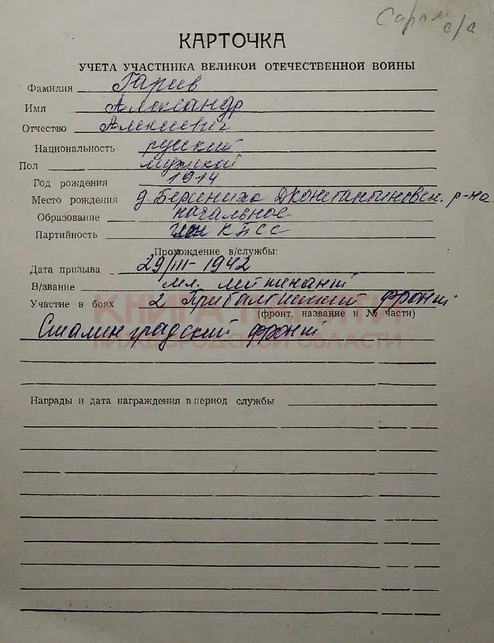 с/с
КАРТОЧКА
УЧЕТА УЧАСТНИКА ВЕЛИКОЙ ОТЕЧЕСТВЕННОЙ ВОЙНЫ
Фамилия Гарив
Имя Александр
Отчество Алексеевич
Национальность русский
Пол мужской
Год рождения 1914
Место рождения д. Березниха Дконстантиновск. р-на
Образование начальное
Партийность член КПСС
Прохождение в/службы:
Дата призыва 29/III-1942
В/звание мл. лейтенант
Участие в боях 2 Прибалтийский фронт
(фронт, название и № части)
Сталинградский фронт
КНИГА ПАМЯТИ
НИЖЕГОРОДСКОЙ ОБЛАСТИ
Награды и дата награждения в период службы